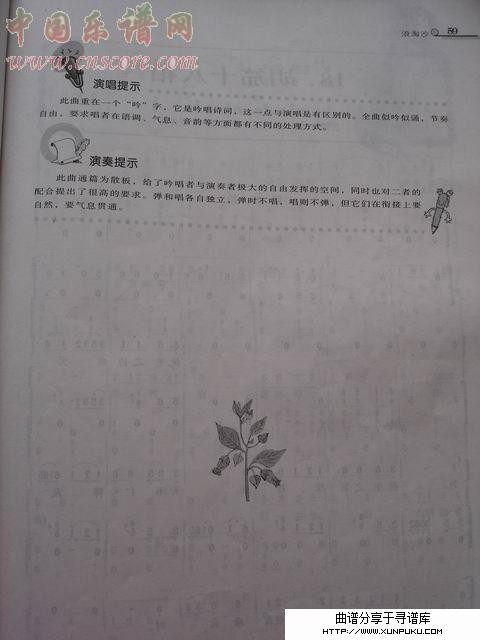 中国乐谱网
www.cnscore.com
浪淘沙 59
演唱提示
此曲重在一个“吟”字，它是吟唱诗词，这一点与演唱是有区别的。全曲似吟似诵，节奏
自由，要求唱者在语调、气息、音韵等方面都有不同的处理方式。
演奏提示
此曲通篇为散板，给了吟唱者与演奏者极大的自由发挥的空间，同时也对二者的
配合提出了很高的要求。弹和唱各自独立，弹时不唱，唱则不弹，但它们在衔接上要
自然，要气息贯通。
曲谱分享于寻谱库
HTTP://WWW.XUNPUKU.COM